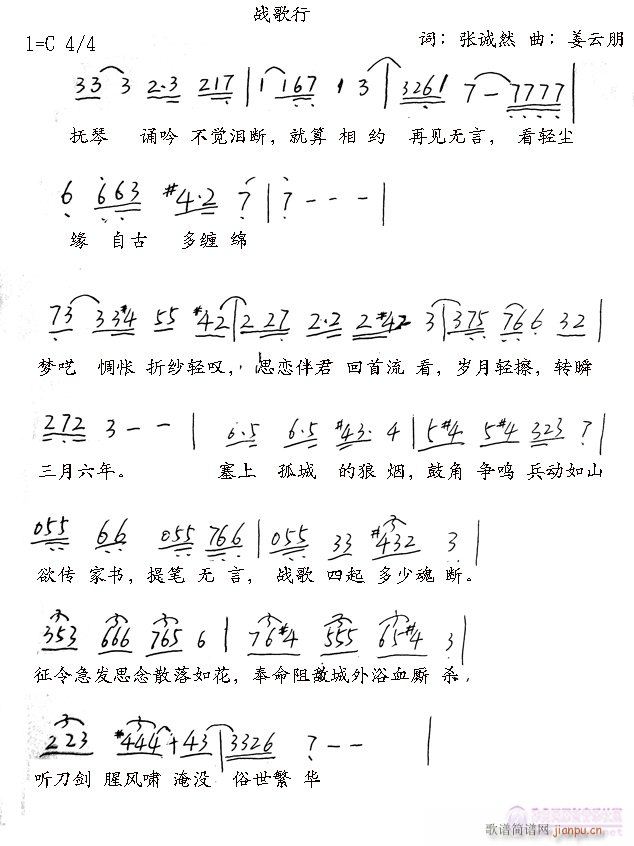 战歌行
1=C 4/4
词：张诚然 曲：姜云朋
33 3 2·3 217 | 1 167 1 3 | 3261 7 — 7777 |
抚琴 诵吟 不觉泪断，就算 相 约 再见无言， 看轻尘
6 663 #4·2 7 | 7 - - - |
缘 自古 多缠 绵
73 33#4 55 #42 | 2 27 2·2 2#42 3 | 375 766 32 |
梦呓 惆怅 折纱轻叹， 思恋伴君 回首流 看，岁月轻擦，转瞬
272 3 - - | 6·5 6·5 #43· 4 | 5#4 5#4 323 7 |
三月六年。 塞上 孤城 的狼 烟，鼓角 争鸣 兵动如山
055 66 055 766 | 055 33 #432 3 |
欲传 家书，提笔 无 言， 战歌 四起 多少魂 断。
353 666 765 6 | 76#4 555 65#4 3 |
征令急发思念散落如花，奉命阻敌城外浴血厮 杀，
223 #444+43 | 3326 7 - - |
听刀剑 腥风啸 淹没 俗世繁 华
歌谱简谱网 jianpu.cn